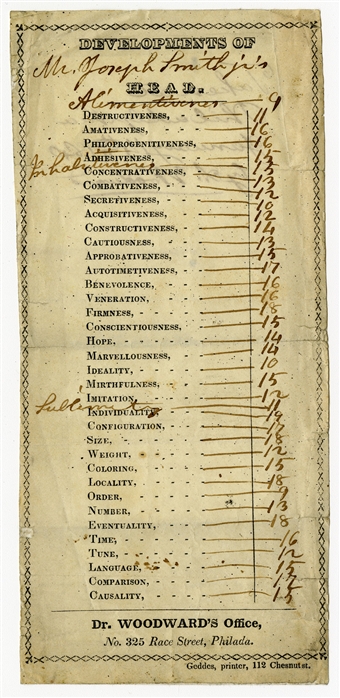 DEVELOPMENTS OF
Mr. Joseph Smith jr's
HEAD.
Alimentiveness 9
DESTRUCTIVENESS, 11
AMATIVENESS, 16
PHILOPROGENITIVENESS, 16
ADHESIVENESS,
Inhabitiveness 15
CONCENTRATIVENESS, 13
COMBATIVENESS, 12
SECRETIVENESS, 10
ACQUISITIVENESS, 12
CONSTRUCTIVENESS, 14
CAUTIOUSNESS, 13
APPROBATIVENESS, 15
AUTOTIMETIVENESS, 17
BENEVOLENCE, 16
VENERATION, 16
FIRMNESS, 18
CONSCIENTIOUSNESS, 15
HOPE, 14
MARVELLOUSNESS, 14
IDEALITY, 10
MIRTHFULNESS, 15
IMITATION, 12
Sublimity 11
INDIVIDUALITY, 19
CONFIGURATION, 17
SIZE, 18
WEIGHT, 12
COLORING, 15
LOCALITY, 18
ORDER, 9
NUMBER, 13
EVENTUALITY, 18
TIME, 16
TUNE, 12
LANGUAGE, 15
COMPARISON, 17
CAUSALITY, 15
Dr. WOODWARD'S Office,
No. 325 Race Street, Philada.
Geddes, printer, 112 Chesnutst.